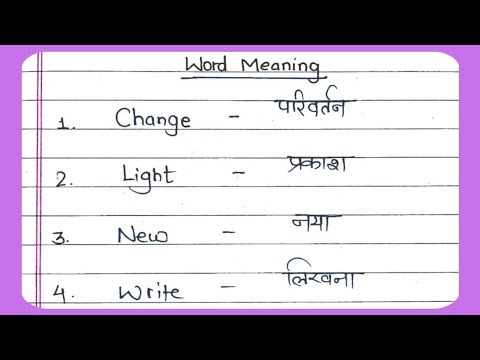 Word Meaning
1. Change - परिवर्तन
2. Light - प्रकाश
3. New - नया
4. Write - लिखना